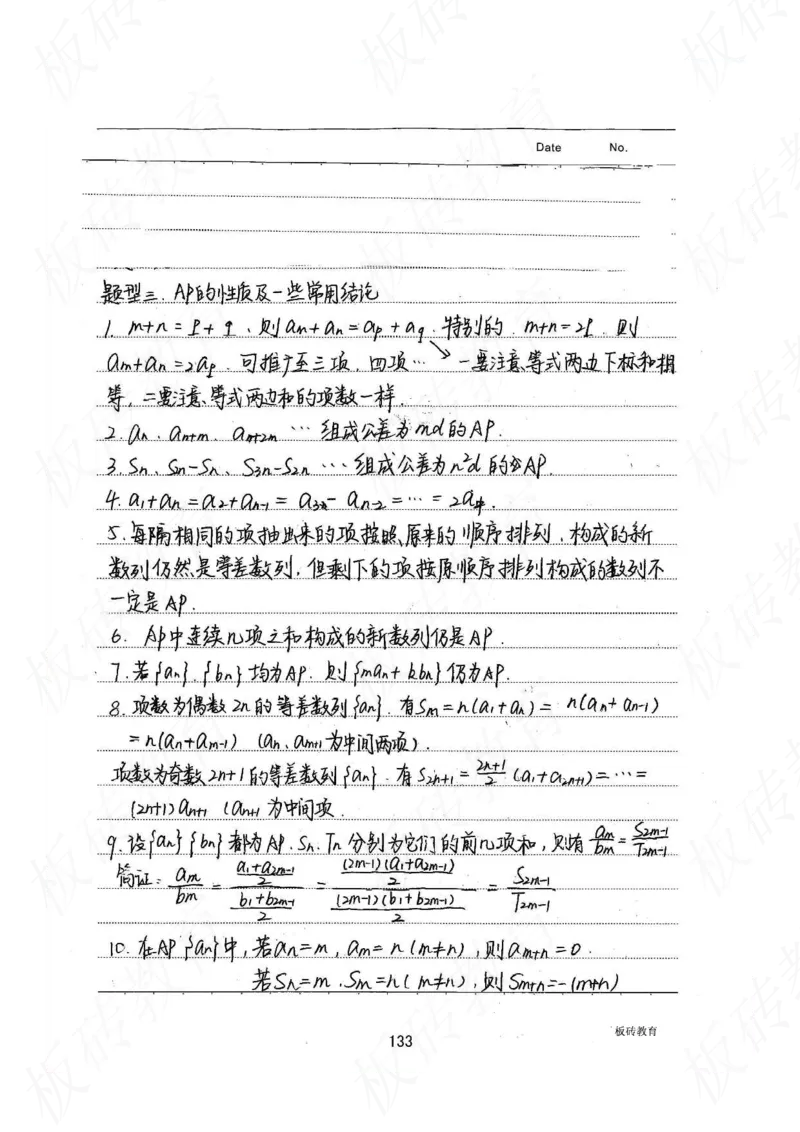 Date No.
题型三. AP的性质及一些常用结论
1. m+n = p+q , 则 am+an = ap+aq . 特别的 . m+n=2p . 则
am+an =2ap . 可推广至三项, 四项… ↘ 一要注意等式两边下标和相
等, 二要注意等式两边和的项数一样.
2. an 、an+m 、an+2m … 组成公差为md的AP.
3. Sn 、S2n-Sn 、S3n-S2n … 组成公差为n²d 的AP.
4. a1+an = a2+an-1 = a3 - an-2 = … = 2a中.
5. 每隔相同的项抽出来的项按照原来的顺序排列, 构成的新
数列仍然是等差数列, 但剩下的项按原顺序排列构成的数列不
一定是AP.
6. AP中连续n项之和构成的新数列仍是AP.
7. 若{an} . {bn} 均为AP. 则{man+kbn}仍为AP.
8. 项数为偶数2n的等差数列{an} . 有Sm = n(a1+an) = n(an+an-1)
= n(an+am-1) (an、am+1为中间两项).
项数为奇数2n+1的等差数列{an} . 有S2n+1 = 2n+1/2 (a1+a2n+1) = … =
(2n+1)an+1 (an+1 为中间项.
9. 设{an} {bn} 都为AP. Sn. Tn 分别为它们的前n项和, 则有 am/bm = S2m-1/T2m-1
简证: am/bm = (a1+a2m-1)/2 / (b1+b2m-1)/2 = (2m-1)(a1+a2m-1)/2 / (2m-1)(b1+b2m-1)/2 = S2m-1/T2m-1
10. 在AP {an}中, 若an=m , am=n (m≠n) , 则am+n=0 .
若Sn=m . Sm=n ( m≠n) , 则Sm+n=-(m+n)
133
板砖教育